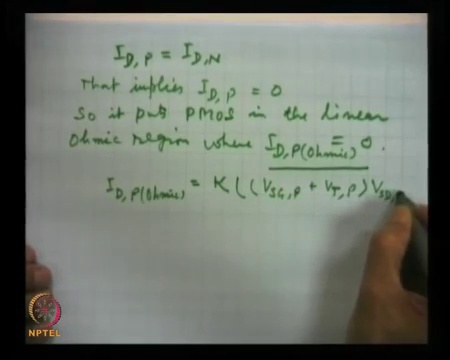 I_D,P = I_D,N
That implies I_D,P = 0
So it puts PMOS in the linear
Ohmic region where I_D,P(Ohmic) = 0.
I_D,P(Ohmic) = K ( (V_SG,P + V_T,P) V_SD,
NPTEL